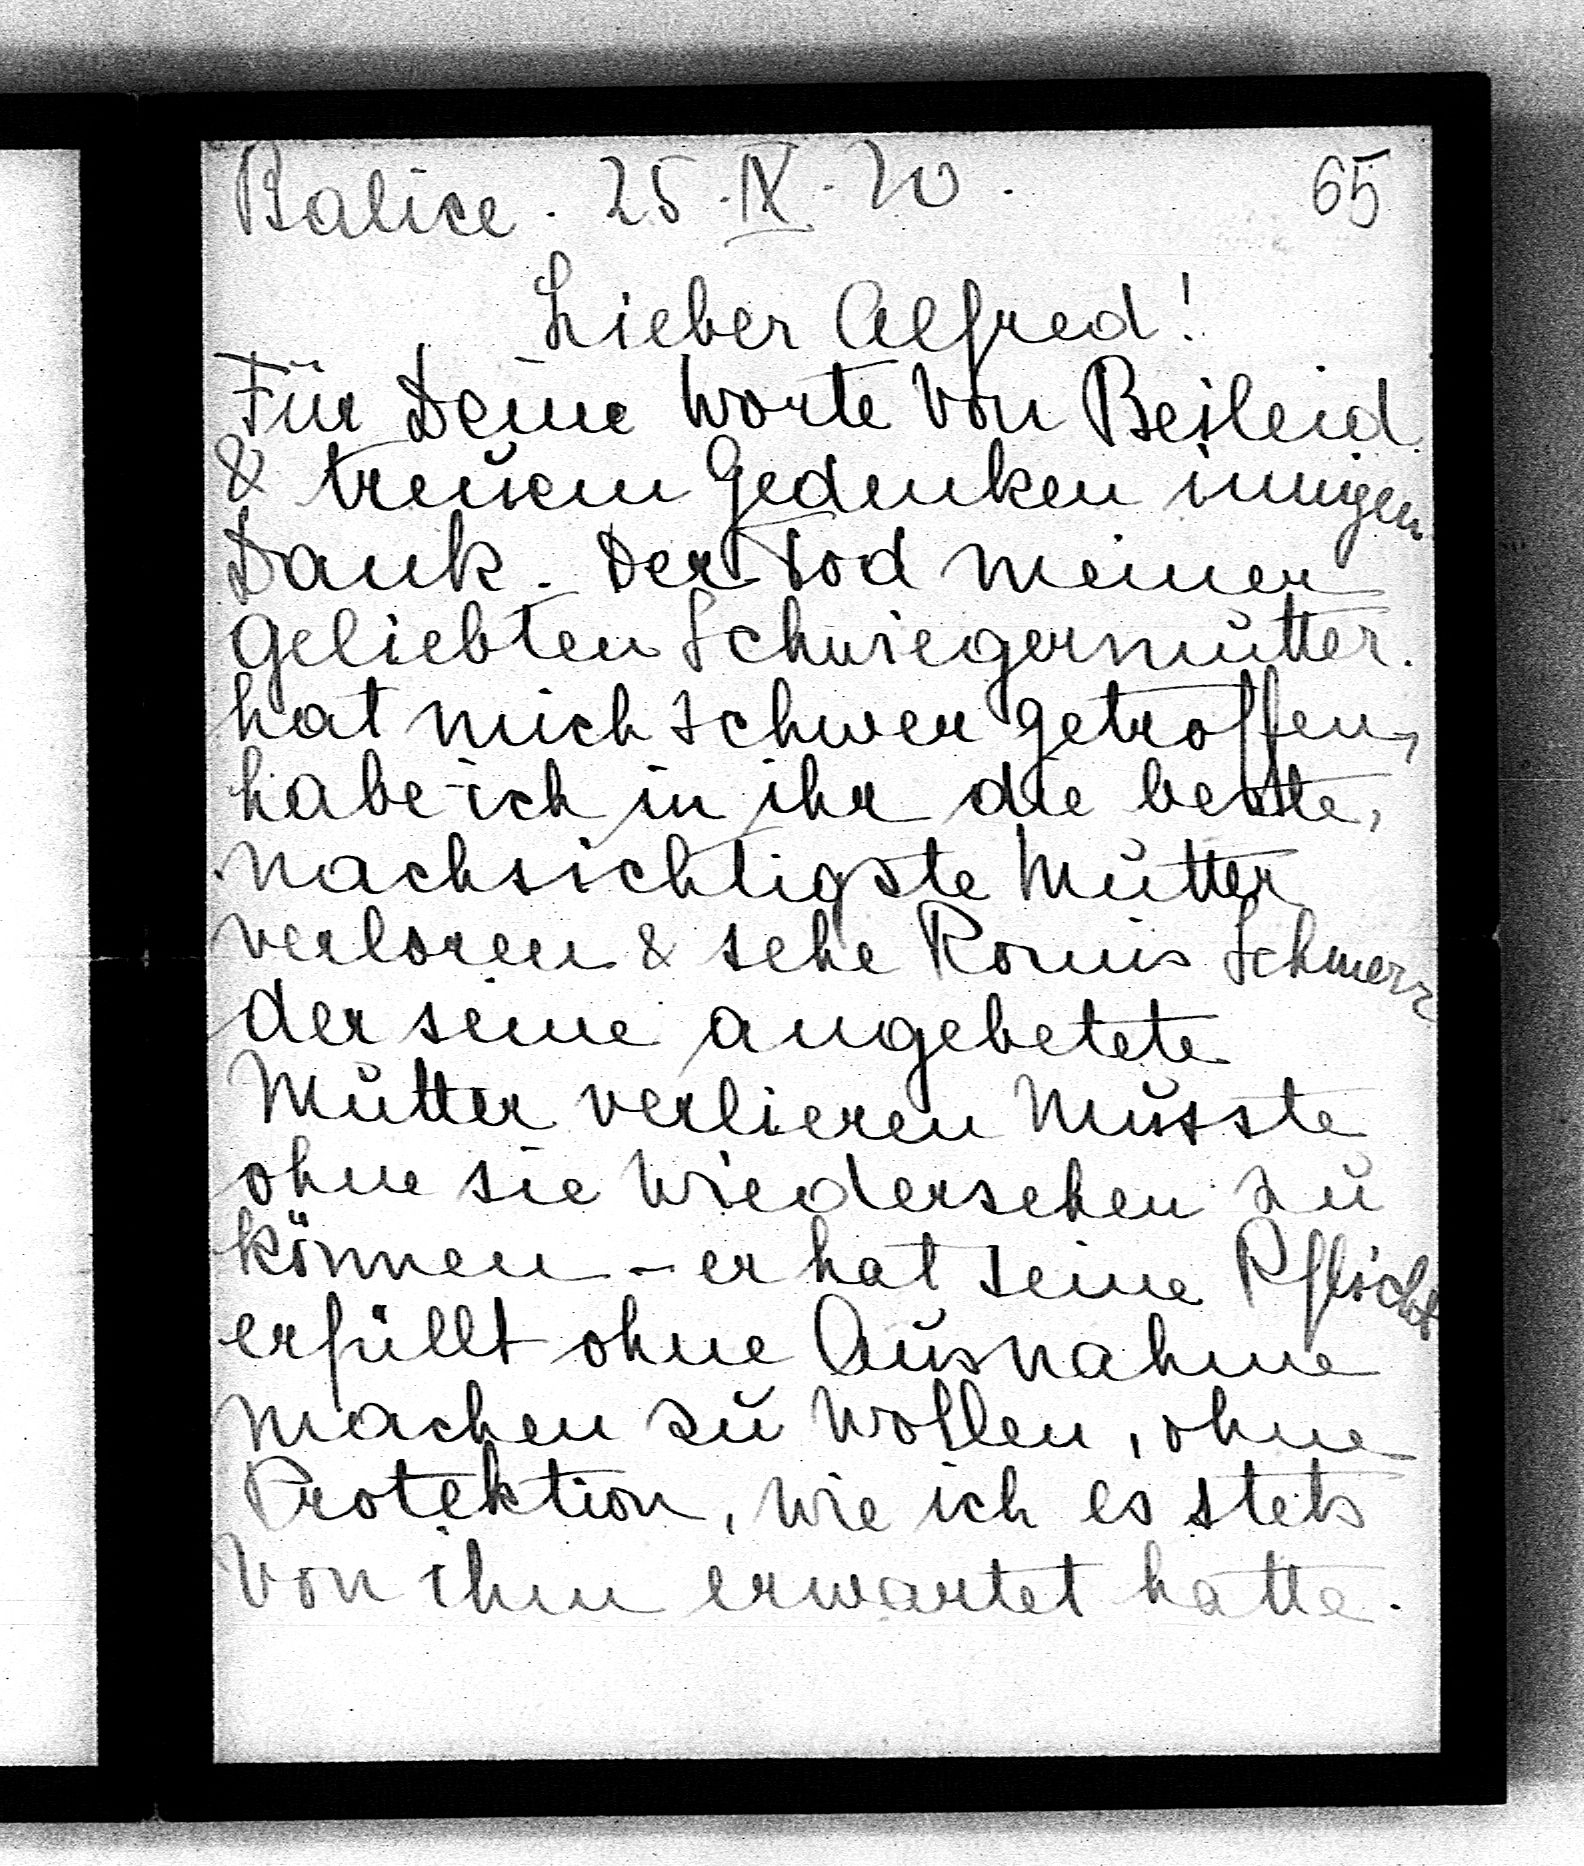 Balice. 25.IX.20. 65
Lieber Alfred!
Für Deine Worte von Beileid
& treuem Gedenken innigen
Dank. Der Tod meiner
geliebten Schwiegermutter.
hat mich schwer getroffen,
habe ich in ihr die beste,
nachsichtigste Mutter
verloren & sehe Romis Schmerz
der seine angebetete
Mutter verlieren musste
ohne sie wiedersehen zu
können - er hat seine Pflicht
erfüllt ohne Ausnahme
machen zu wollen, ohne
Protektion, wie ich es stets
von ihm erwartet hatte.